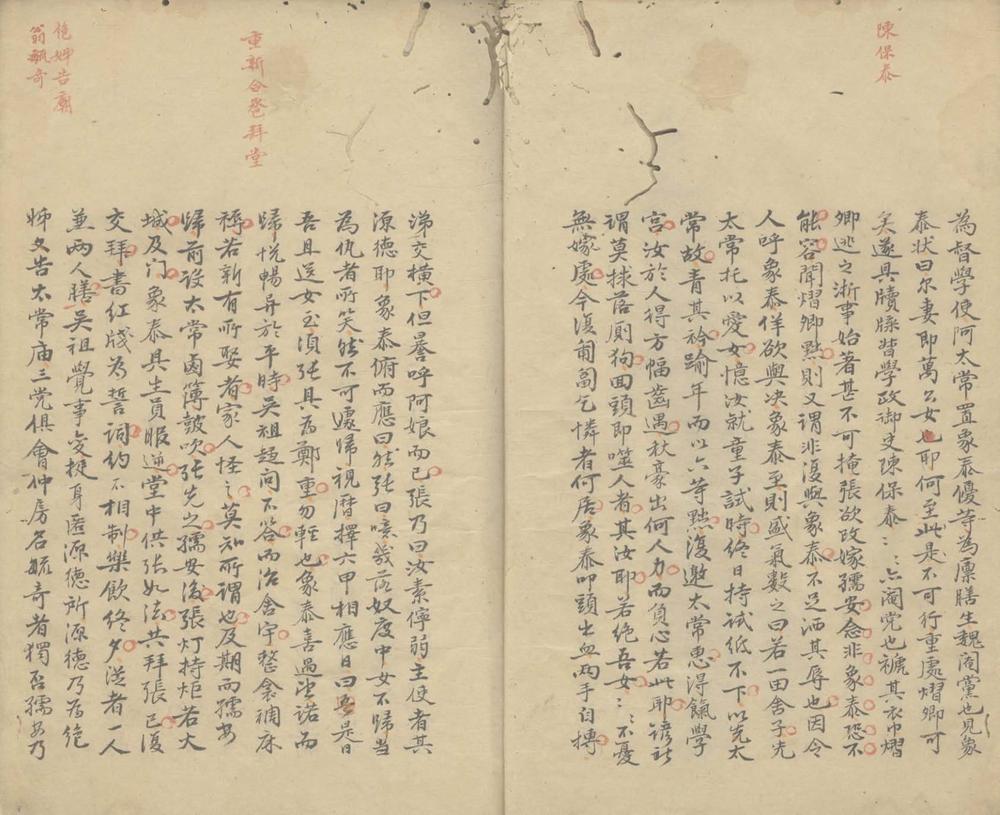 陳保泰
為督學使阿太常置象泰優等為廩膳生魏閹黨也見象
泰狀曰尔妻即萬公女也耶何至此是不可行重處熠卿可
矣遂具牘牒督學政御史陳保泰〻〻亦閹党也褫其衣巾熠
卿逃之浙事始著甚不可掩張欲改嫁孺安念非象泰恐不
能容聞熠卿黜則又謂非復與象泰不足洒其辱也因令
人呼象泰佯欲與决象泰至則盛氣數之曰若一田舍子先
太常托以愛女憶汝就童子試時終日持試低不下以先太
常故青其衿踰年而以六等黜復邀太常惠得餼學
宫汝於人得方幅齒遇秋豪出何人力而負心若此耶諺云
謂莫捄落厠狗回頭即噬人者其汝耶若絶吾女〻〻不憂
無嫁處今復匍匐乞憐者何居象泰叩頭出血兩手自摶
重新合卺拜堂
涕交横下但㬥呼阿娘而已張乃曰汝素儜弱主使者其
源德耶象泰俯而應曰然張曰嘻幾落奴度中女不歸當
為仇者所笑然不可遽歸視曆擇六甲相應日曰某是日
吾且送女至湏張具為鄭重勿輊也象泰喜過望諾而
歸悦暢异於平時吴祖趋问不答而治舍宇整衾裯床
褥若新有所娶者家人怪〻莫知所謂也及期而孺安
歸前設太常鹵簿皷吹張先之孺安後張灯持炬若大
城及门象泰具生員暇逆堂中供張如法共拜張已復
交拜書红牋為誓詞约不相制樂飲终夕送者一人
並兩人膳吴祖覺事变挺身匿源德所源德乃為絶
姊文告太常庙三党俱會仲房名毓奇者獨否孺安乃
絶姊告廟
翁毓奇